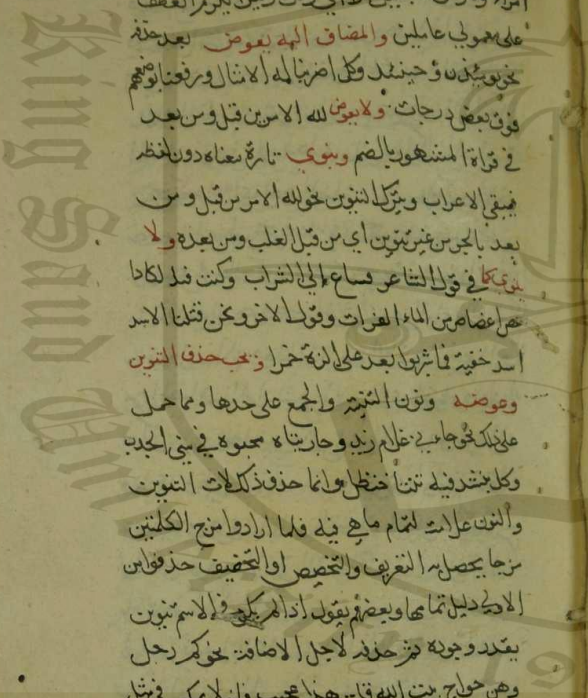 على معمولي عاملين والمضاف اليه يعوض بعد حذفه
نحو يومئذ وحينئذ وكلا ضربنا له الامثال ورفعنا بعضهم
فوق بعض درجات ولا يعوض لله الامر من قبل ومن بعد
في قراة المشهور بالضم وينوي تارة معناه دون لفظه
فيبقى الاعراب ويترك التنوين نحو لله الامر من قبل ومن
بعد بالجر من غير تنوين اي من قبل الغلب ومن بعده ولا
ينوي كما في قول الشاعر فساغ الي الشراب وكنت قبلا اكادا
اغص من الماء الفرات وقول الاخر ونحن قتلنا الاسد
اسد خفية فما شربوا بعد على لذة خمرا ويجب حذف التنوين
وعوضه ونون التثنية والجمع على حدها ومما حمل
على ذلك نحو جاءني غلام زيد وجاريتاه في بيتي
وكل فيه حنظل وانما حذف ذلك لان التنوين
والنون علامة لتمام ما هي فيه فلما ارادوا مزج الكلمتين
مزجا يحصل به التعريف والتخصيص او التخفيف حذفوا من
الاولى دليل تمامها وبعضهم يقول اذا لم يكن في الاسم تنوين
يقدر وجوده ثم حذفه لاجل الاضافة نحو كم رجل
وهن حواج بيت الله
King Saud University